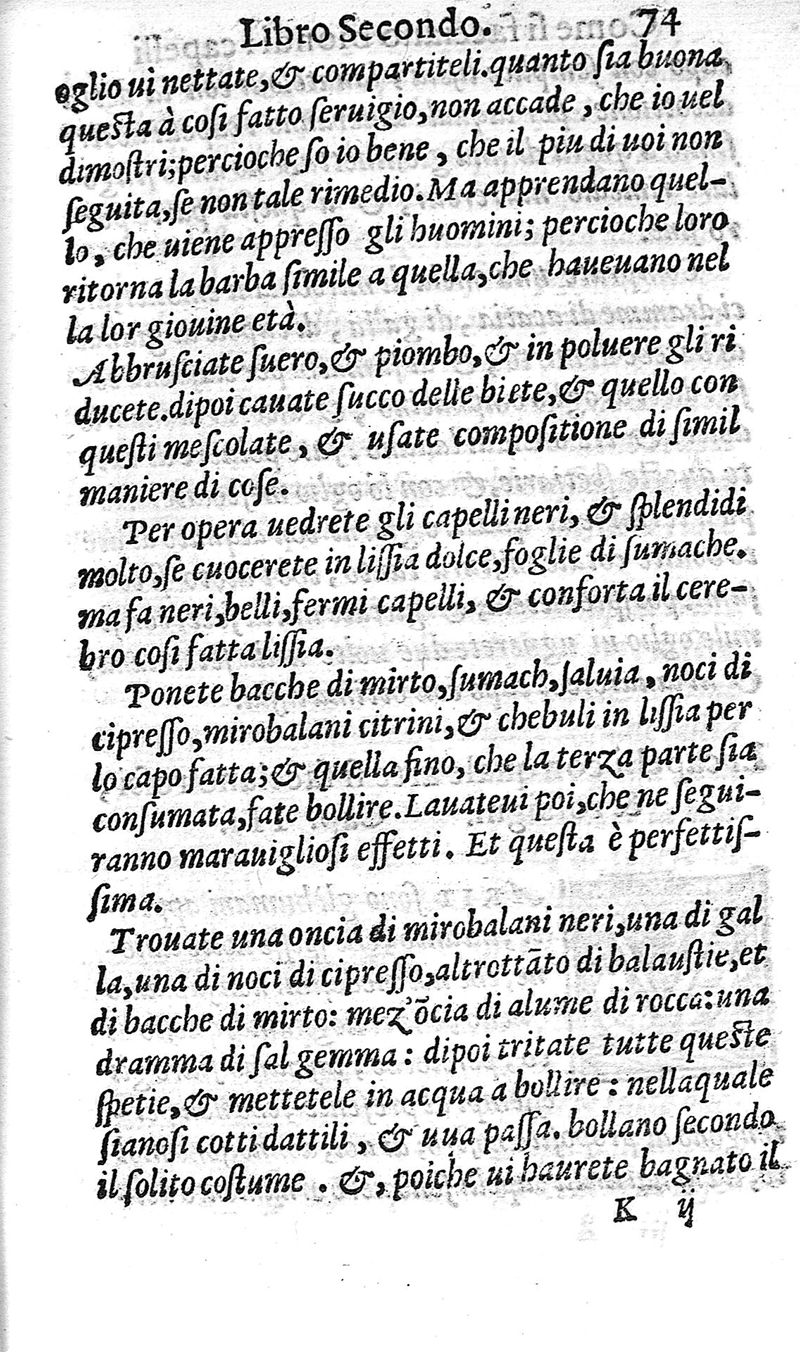 Libro Secondo. 74
oglio ui nettate, & compartiteli. quanto ſia buona
queſta à coſi fatto ſeruigio, non accade, che io uel
dimoſtri; percioche ſo io bene, che il piu di uoi non
ſeguita, ſe non tale rimedio. Ma apprendano quel-
lo, che uiene appreſſo gli huomini; percioche loro
ritorna la barba ſimile a quella, che haueuano nel
la lor giouine età.
Abbruſciate ſuero, & piombo, & in poluere gli ri
ducete. dipoi cauate ſucco delle biete, & quello con
queſti meſcolate, & uſate compoſitione di ſimil
maniere di coſe.
Per opera uedrete gli capelli neri, & ſplendidi
molto, ſe cuocerete in liſſia dolce, foglie di ſumache.
ma fa neri, belli, fermi capelli, & conforta il cere-
bro coſi fatta liſſia.
Ponete bacche di mirto, ſumach, ſaluia, noci di
cipreſſo, mirobalani citrini, & chebuli in liſſia per
lo capo fatta; & quella fino, che la terza parte ſia
conſumata, fate bollire. Lauateui poi, che ne ſegui-
ranno marauiglioſi effetti. Et queſta è perfettiſ-
ſima.
Trouate una oncia di mirobalani neri, una di gal
la, una di noci di cipreſſo, altrottãto di balauſtie, et
di bacche di mirto: mez'õcia di alume di rocca: una
dramma di ſal gemma: dipoi tritate tutte queſte
ſpetie, & mettetele in acqua a bollire: nellaquale
ſianoſi cotti dattili, & uua paſſa. bollano ſecondo
il ſolito coſtume. &, poiche ui haurete bagnato il
K ij